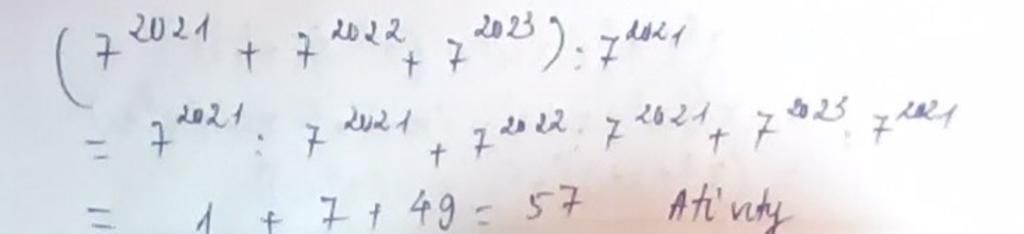 (7²⁰²¹ + 7²⁰²² + 7²⁰²³) : 7²⁰²¹
= 7²⁰²¹ : 7²⁰²¹ + 7²⁰²² : 7²⁰²¹ + 7²⁰²³ : 7²⁰²¹
= 1 + 7 + 49 = 57